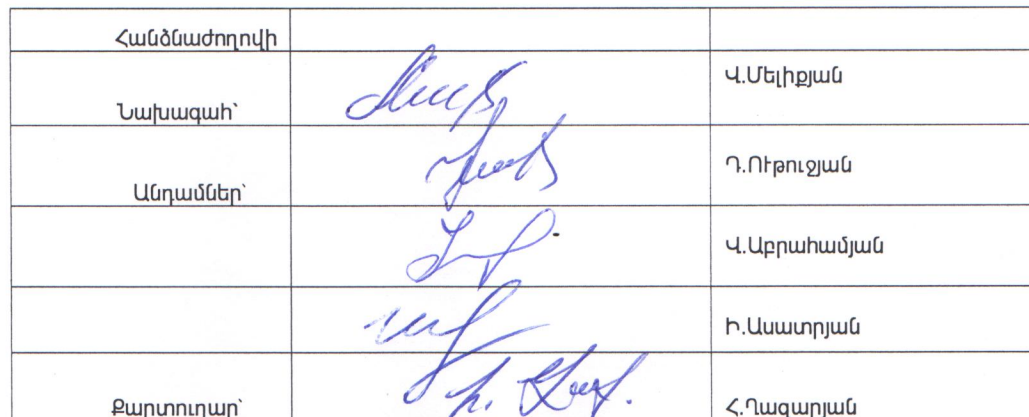 Հանձնաժողովի
Նախագահ՝ Վ.Մելիքյան
Անդամներ՝ Դ.Ութուջյան
Վ.Աբրահամյան
Ի.Ասատրյան
Քարտուղար՝ Հ.Ղազարյան